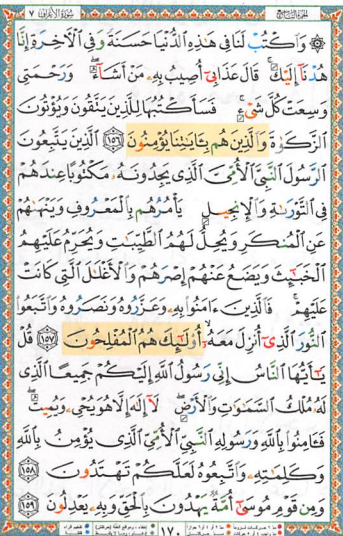 سُورَةُ الأَعْرَافِ ٧
۞ وَاكْتُبْ لَنَا فِي هَٰذِهِ الدُّنْيَا حَسَنَةً وَفِي الْآخِرَةِ إِنَّا
هُدْنَا إِلَيْكَ ۚ قَالَ عَذَابِي أُصِيبُ بِهِ مَنْ أَشَاءُ ۖ وَرَحْمَتِي
وَسِعَتْ كُلَّ شَيْءٍ ۚ فَسَأَكْتُبُهَا لِلَّذِينَ يَتَّقُونَ وَيُؤْتُونَ
الزَّكَوٰةَ وَالَّذِينَ هُم بِـَٔايَـٰتِنَا يُؤْمِنُونَ ١٥٦ الَّذِينَ يَتَّبِعُونَ
الرَّسُولَ النَّبِيَّ الْأُمِّيَّ الَّذِي يَجِدُونَهُ مَكْتُوبًا عِندَهُمْ
فِي التَّوْرَىٰةِ وَالْإِنجِيلِ يَأْمُرُهُم بِالْمَعْرُوفِ وَيَنْهَىٰهُمْ
عَنِ الْمُنكَرِ وَيُحِلُّ لَهُمُ الطَّيِّبَـٰتِ وَيُحَرِّمُ عَلَيْهِمُ
الْخَبَـٰٓئِثَ وَيَضَعُ عَنْهُمْ إِصْرَهُمْ وَالْأَغْلَـٰلَ الَّتِي كَانَتْ
عَلَيْهِمْ ۚ فَالَّذِينَ ءَامَنُوا بِهِ وَعَزَّرُوهُ وَنَصَرُوهُ وَاتَّبَعُوا
النُّورَ الَّذِي أُنزِلَ مَعَهُ أُولَـٰٓئِكَ هُمُ الْمُفْلِحُونَ ١٥٧ قُلْ
يَـٰٓأَيُّهَا النَّاسُ إِنِّي رَسُولُ اللَّهِ إِلَيْكُمْ جَمِيعًا الَّذِي
لَهُ مُلْكُ السَّمَـٰوَٰتِ وَالْأَرْضِ ۖ لَا إِلَـٰهَ إِلَّا هُوَ يُحْيِي وَيُمِيتُ ۖ
فَـَٔامِنُوا بِاللَّهِ وَرَسُولِهِ النَّبِيِّ الْأُمِّيِّ الَّذِي يُؤْمِنُ بِاللَّهِ
وَكَلِمَـٰتِهِ وَاتَّبِعُوهُ لَعَلَّكُمْ تَهْتَدُونَ ١٥٨
وَمِن قَوْمِ مُوسَىٰ أُمَّةٌ يَهْدُونَ بِالْحَقِّ وَبِهِ يَعْدِلُونَ ١٥٩
١٧٠